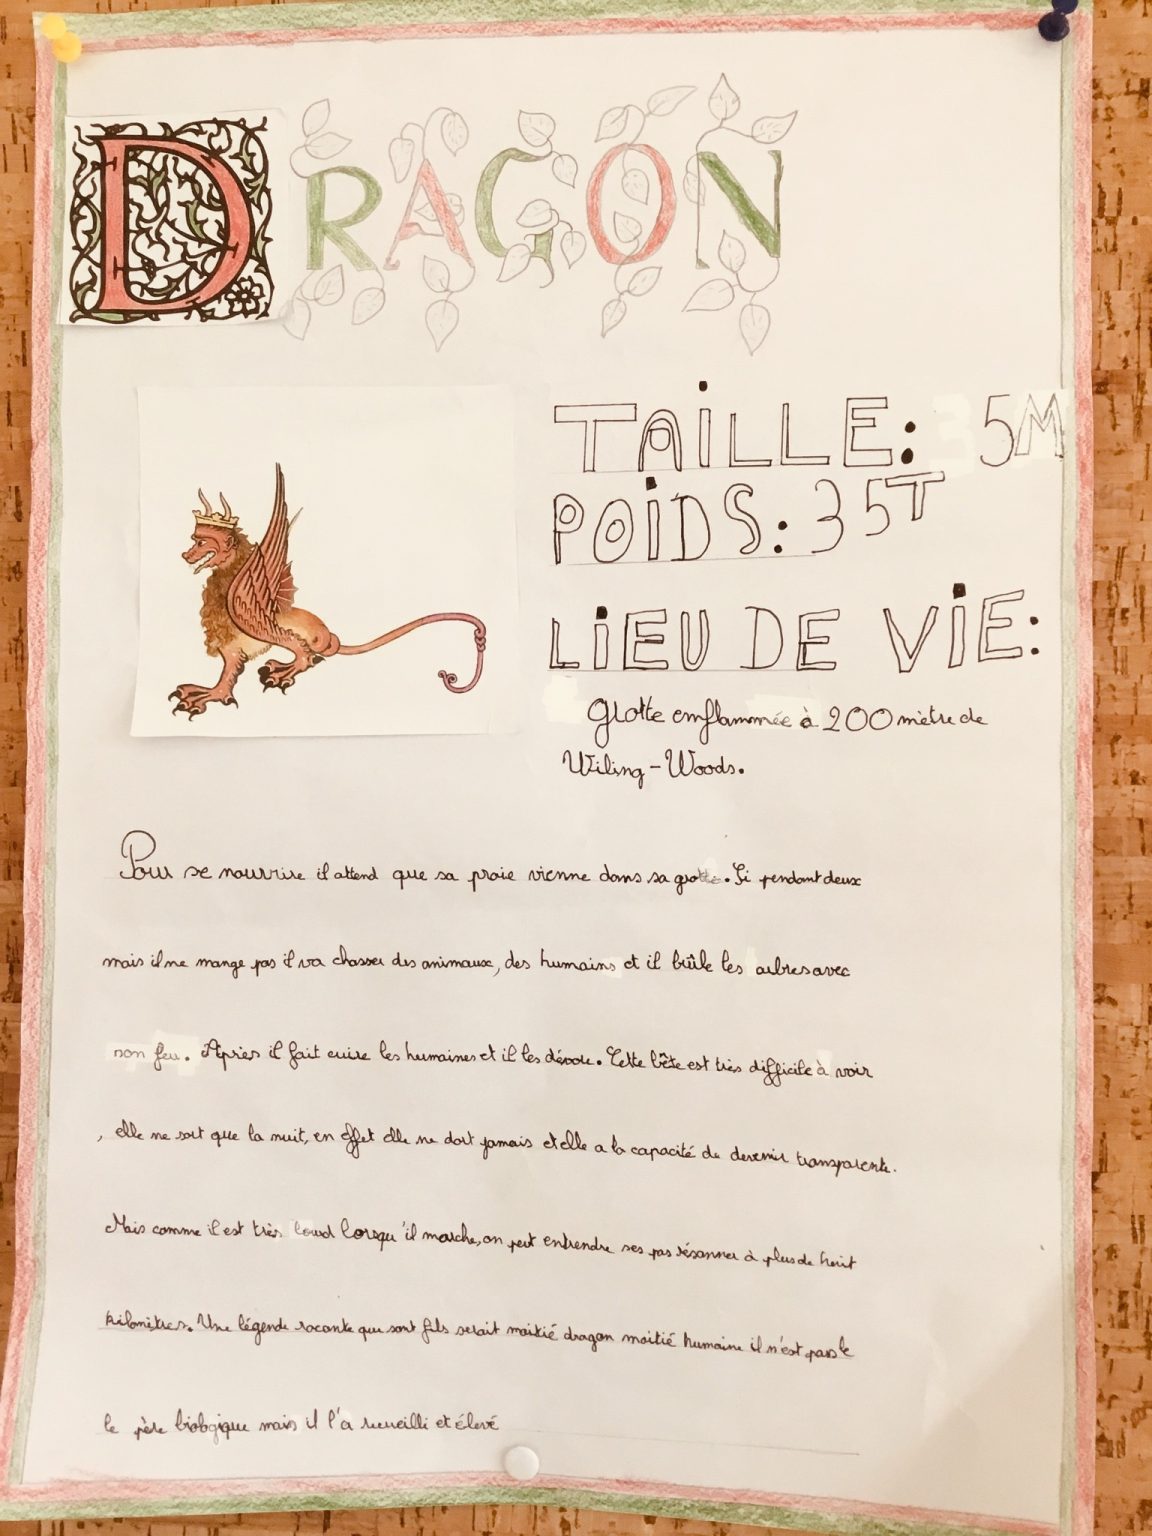 DRAGON
TAILLE: 35M
POIDS: 35T
LIEU DE VIE:
Grotte enflammée à 200 mètre de
Wiling-Woods.
Pour se nourrire il attend que sa proie vienne dans sa grotte. Si pendant deux
mais il ne mange pas il va chasser des animaux, des humains et il brûle les arbres avec
son feu. Après il fait cuire les humaines et il les dévore. Cette bête est très difficile à voir
, elle ne sort que la nuit, en effet elle ne dort jamais et elle a la capacité de devenir transparente.
Mais comme il est très lourd lorsqu'il marche, on peut entrendre ses pas résonner à plus de huit
kilomètres. Une légende raconte que sont fils serait moitié dragon moitié humaine il n'est pas le
le père biologique mais il l'a recueilli et élevé